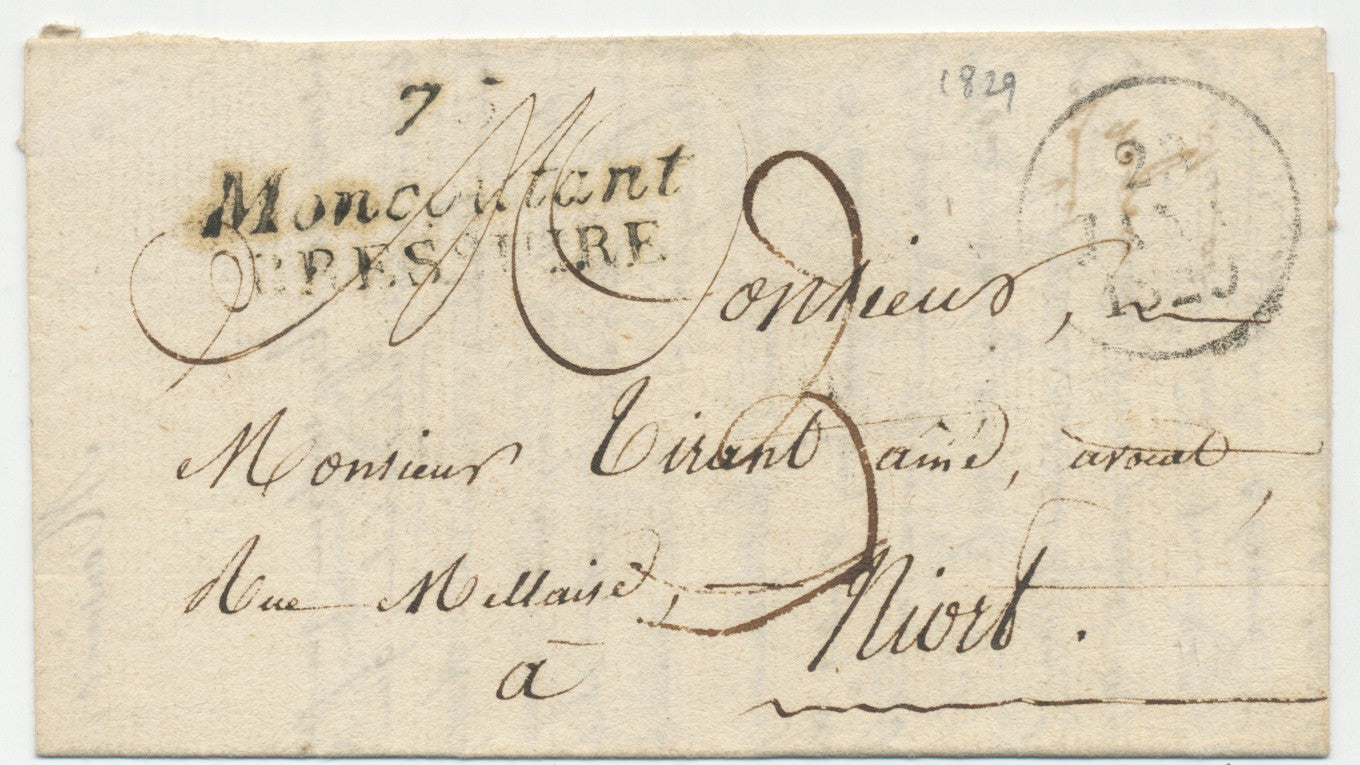 1829
7
Moncoutant
BRESSUIRE
JANV
Monsieur,
Monsieur Tirant aîné, avocat,
Rue Mellaise,
à Niort.